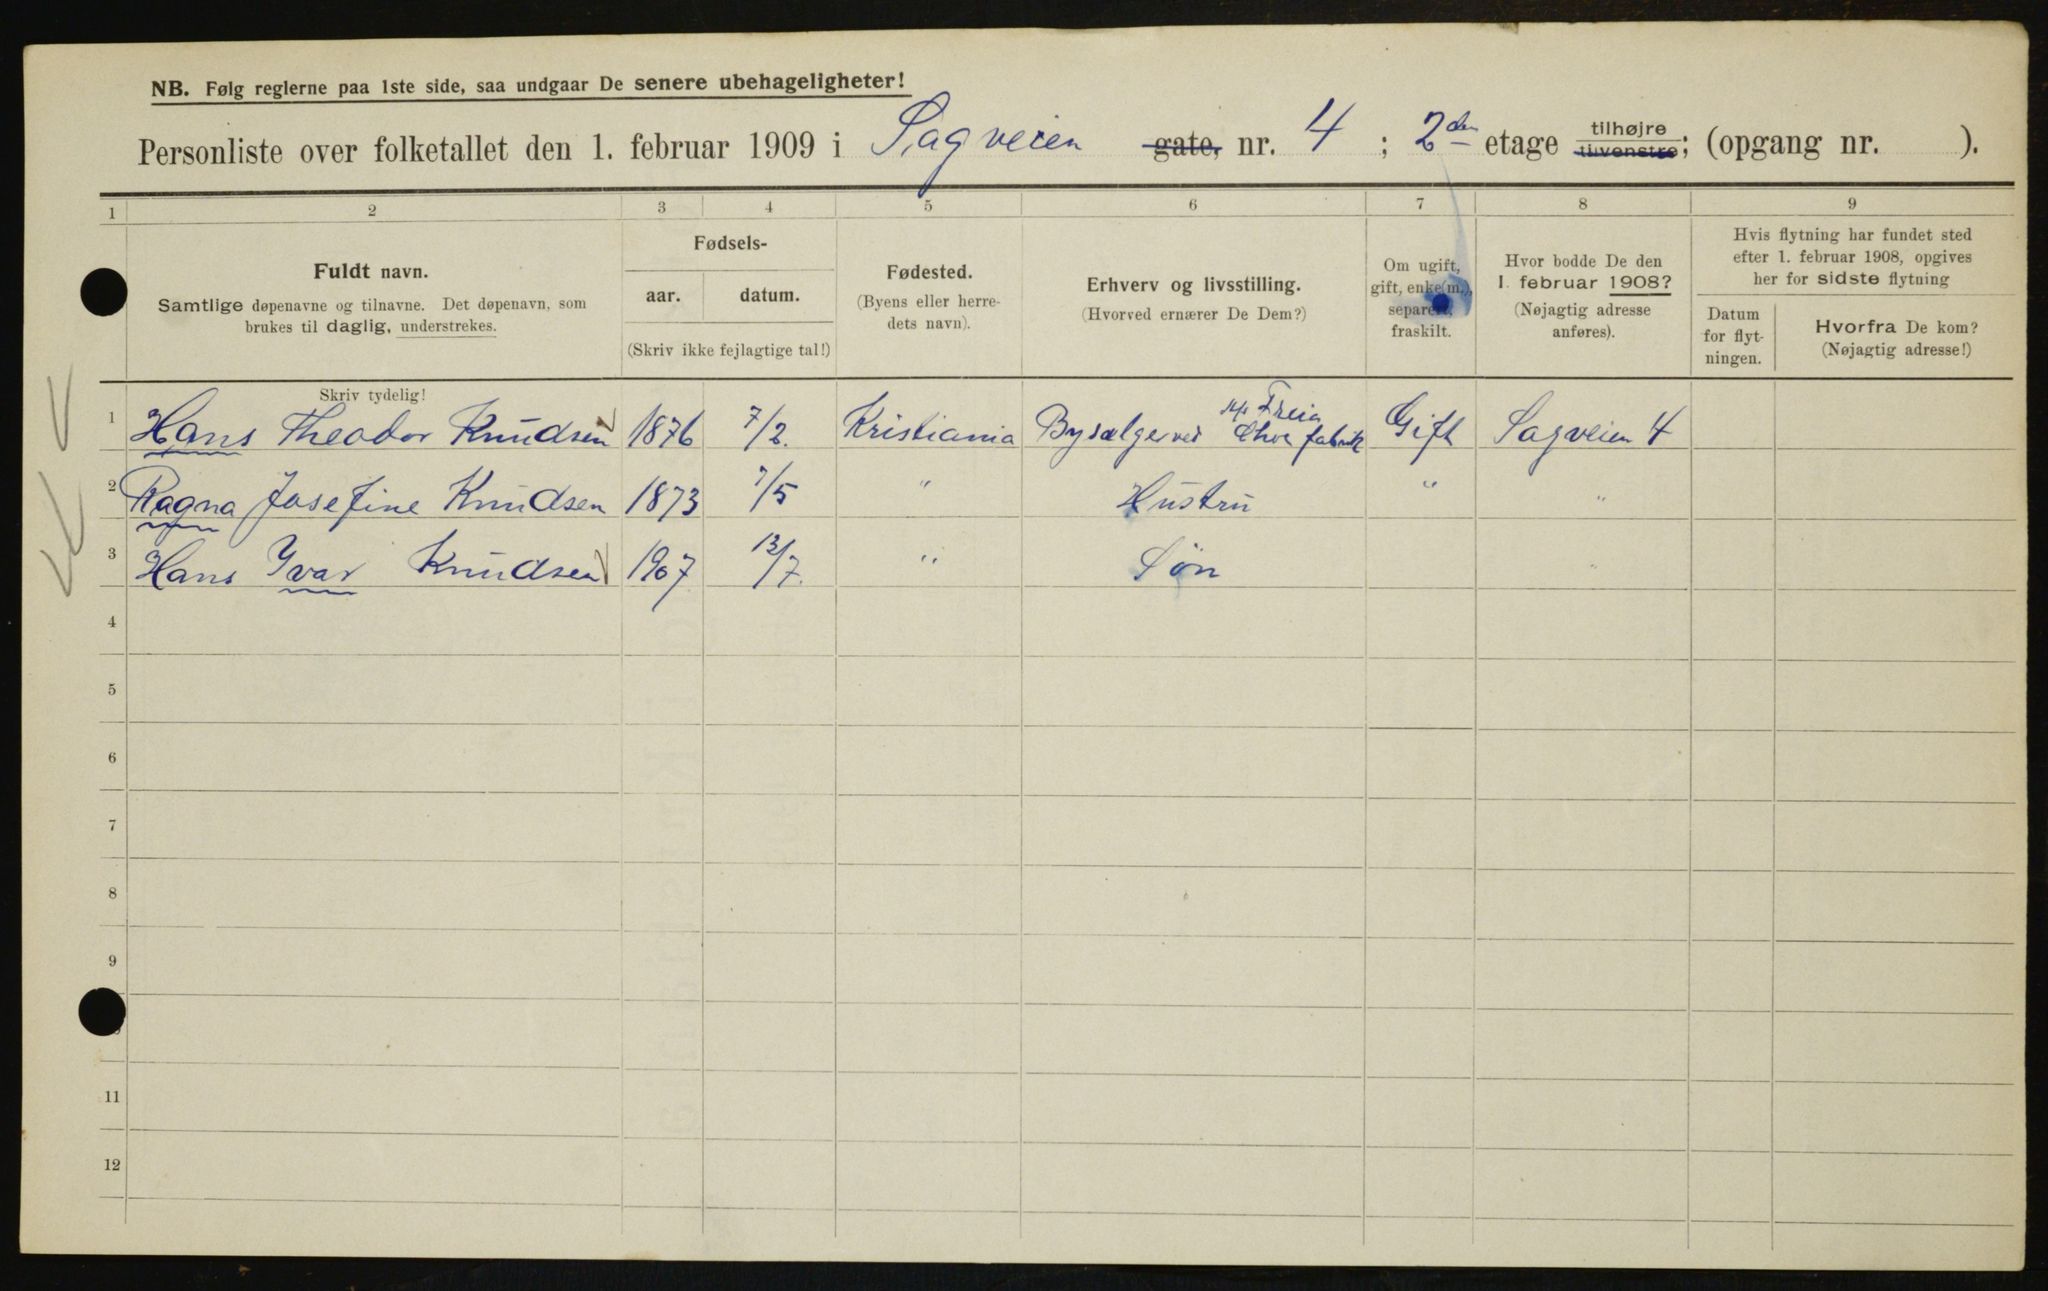 NB. Følg reglerne paa 1ste side, saa undgaar De senere ubehageligheter!
Personliste over folketallet den 1. februar 1909 i Sagveien gate, nr. 4 ; 2den etage tilhøjre tilvenstre; (opgang nr. ).
1 2 3 4 5 6 7 8 9
Fuldt navn.
Samtlige døpenavne og tilnavne. Det døpenavn, som
brukes til daglig, understrekes.
Fødsels-
aar. datum.
(Skriv ikke fejlagtige tal!)
Fødested.
(Byens eller herre-
dets navn).
Erhverv og livsstilling.
(Hvorved ernærer De Dem?)
Om ugift,
gift, enke(m.),
separert,
fraskilt.
Hvor bodde De den
1. februar 1908?
(Nøjagtig adresse
anføres).
Hvis flytning har fundet sted
efter 1. februar 1908, opgives
her for sidste flytning
Datum
for flyt-
ningen.
Hvorfra De kom?
(Nøjagtig adresse!)
Skriv tydelig!
1 Hans Theodor Knudsen 1876 7/2. Kristiania Bysælger ved Freia Choc fabrik Gift Sagveien 4
2 Ragna Josefine Knudsen 1873 7/5 " Hustru " "
3 Hans Yvar Knudsen 1907 13/7. " Søn "
4
5
6
7
8
9
11
12